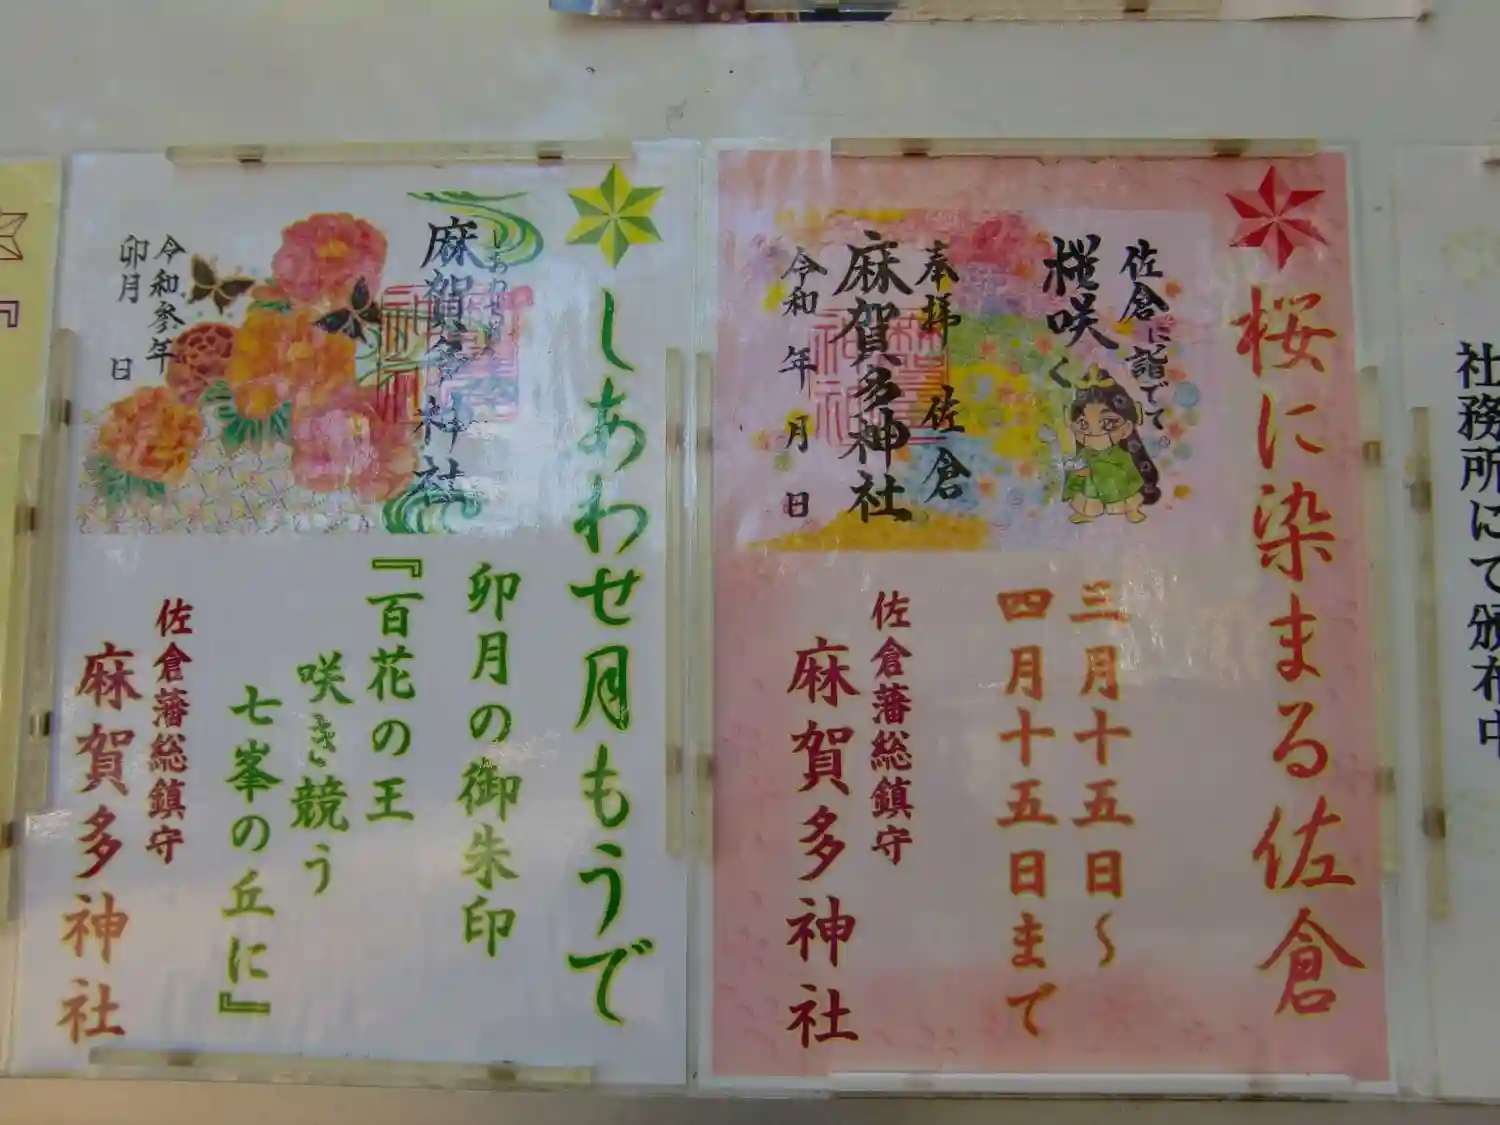 社務所にて頒布中
桜に染まる佐倉
佐倉に詣でて
桜咲く
奉拝 佐倉
麻賀多神社
令和 年 月 日
三月十五日～
四月十五日まで
佐倉藩総鎮守
麻賀多神社
しあわせ月もうで
麻賀多神社
令和参年
卯月 日
卯月の御朱印
『百花の王
咲き競う
七峯の丘に』
佐倉藩総鎮守
麻賀多神社